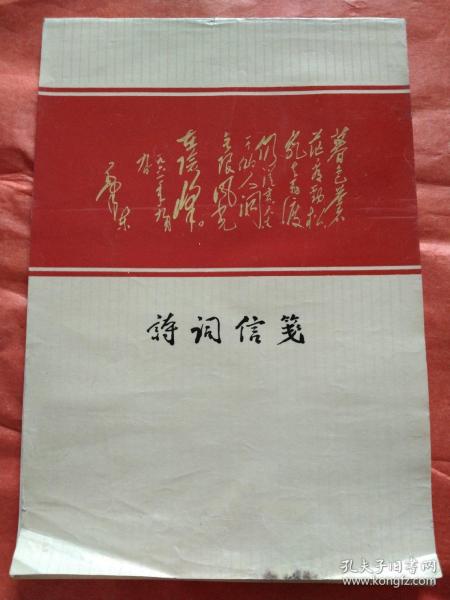 暮色蒼
茫看劲松
乱云飞渡
仍从容天生
一个仙人洞
无限风光
在险峰。
一九六一年九月
九日
毛泽东
詩词信笺
孔夫子旧书网
www.kongfz.com